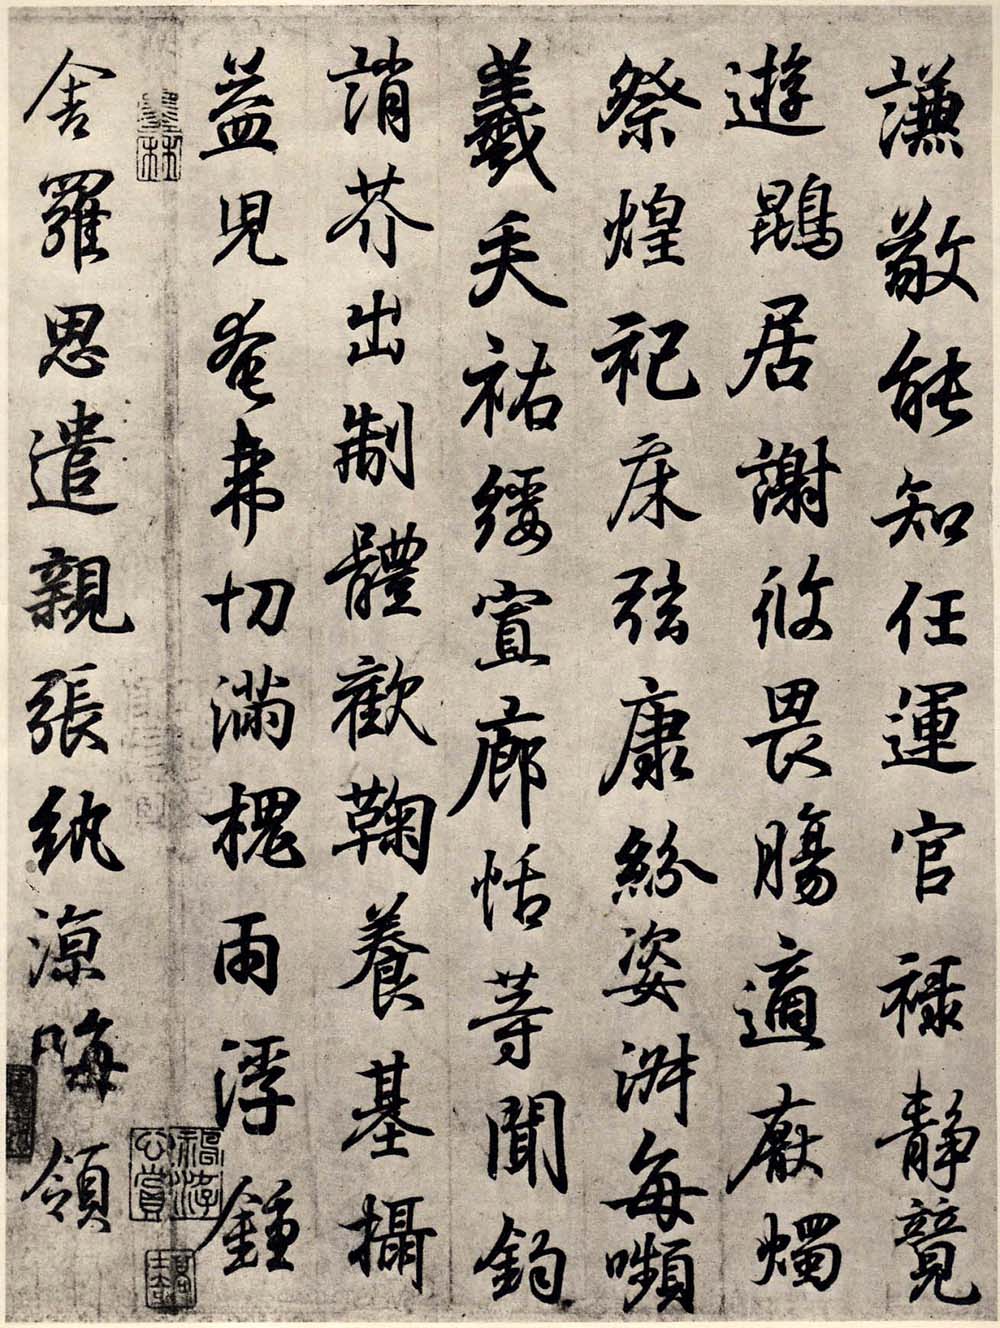 謙敬能知任運官祿靜競
遊鵾居謝攸畏腸適厭燭
祭煌祀床弦康紛姿淵每嚬
羲矢祐纓宣廊恬等聞鈞
誚芥出制體歡鞠養基攝
益見奄弗切滿槐雨浮鍾
舍羅思遣親張紈涼晦領